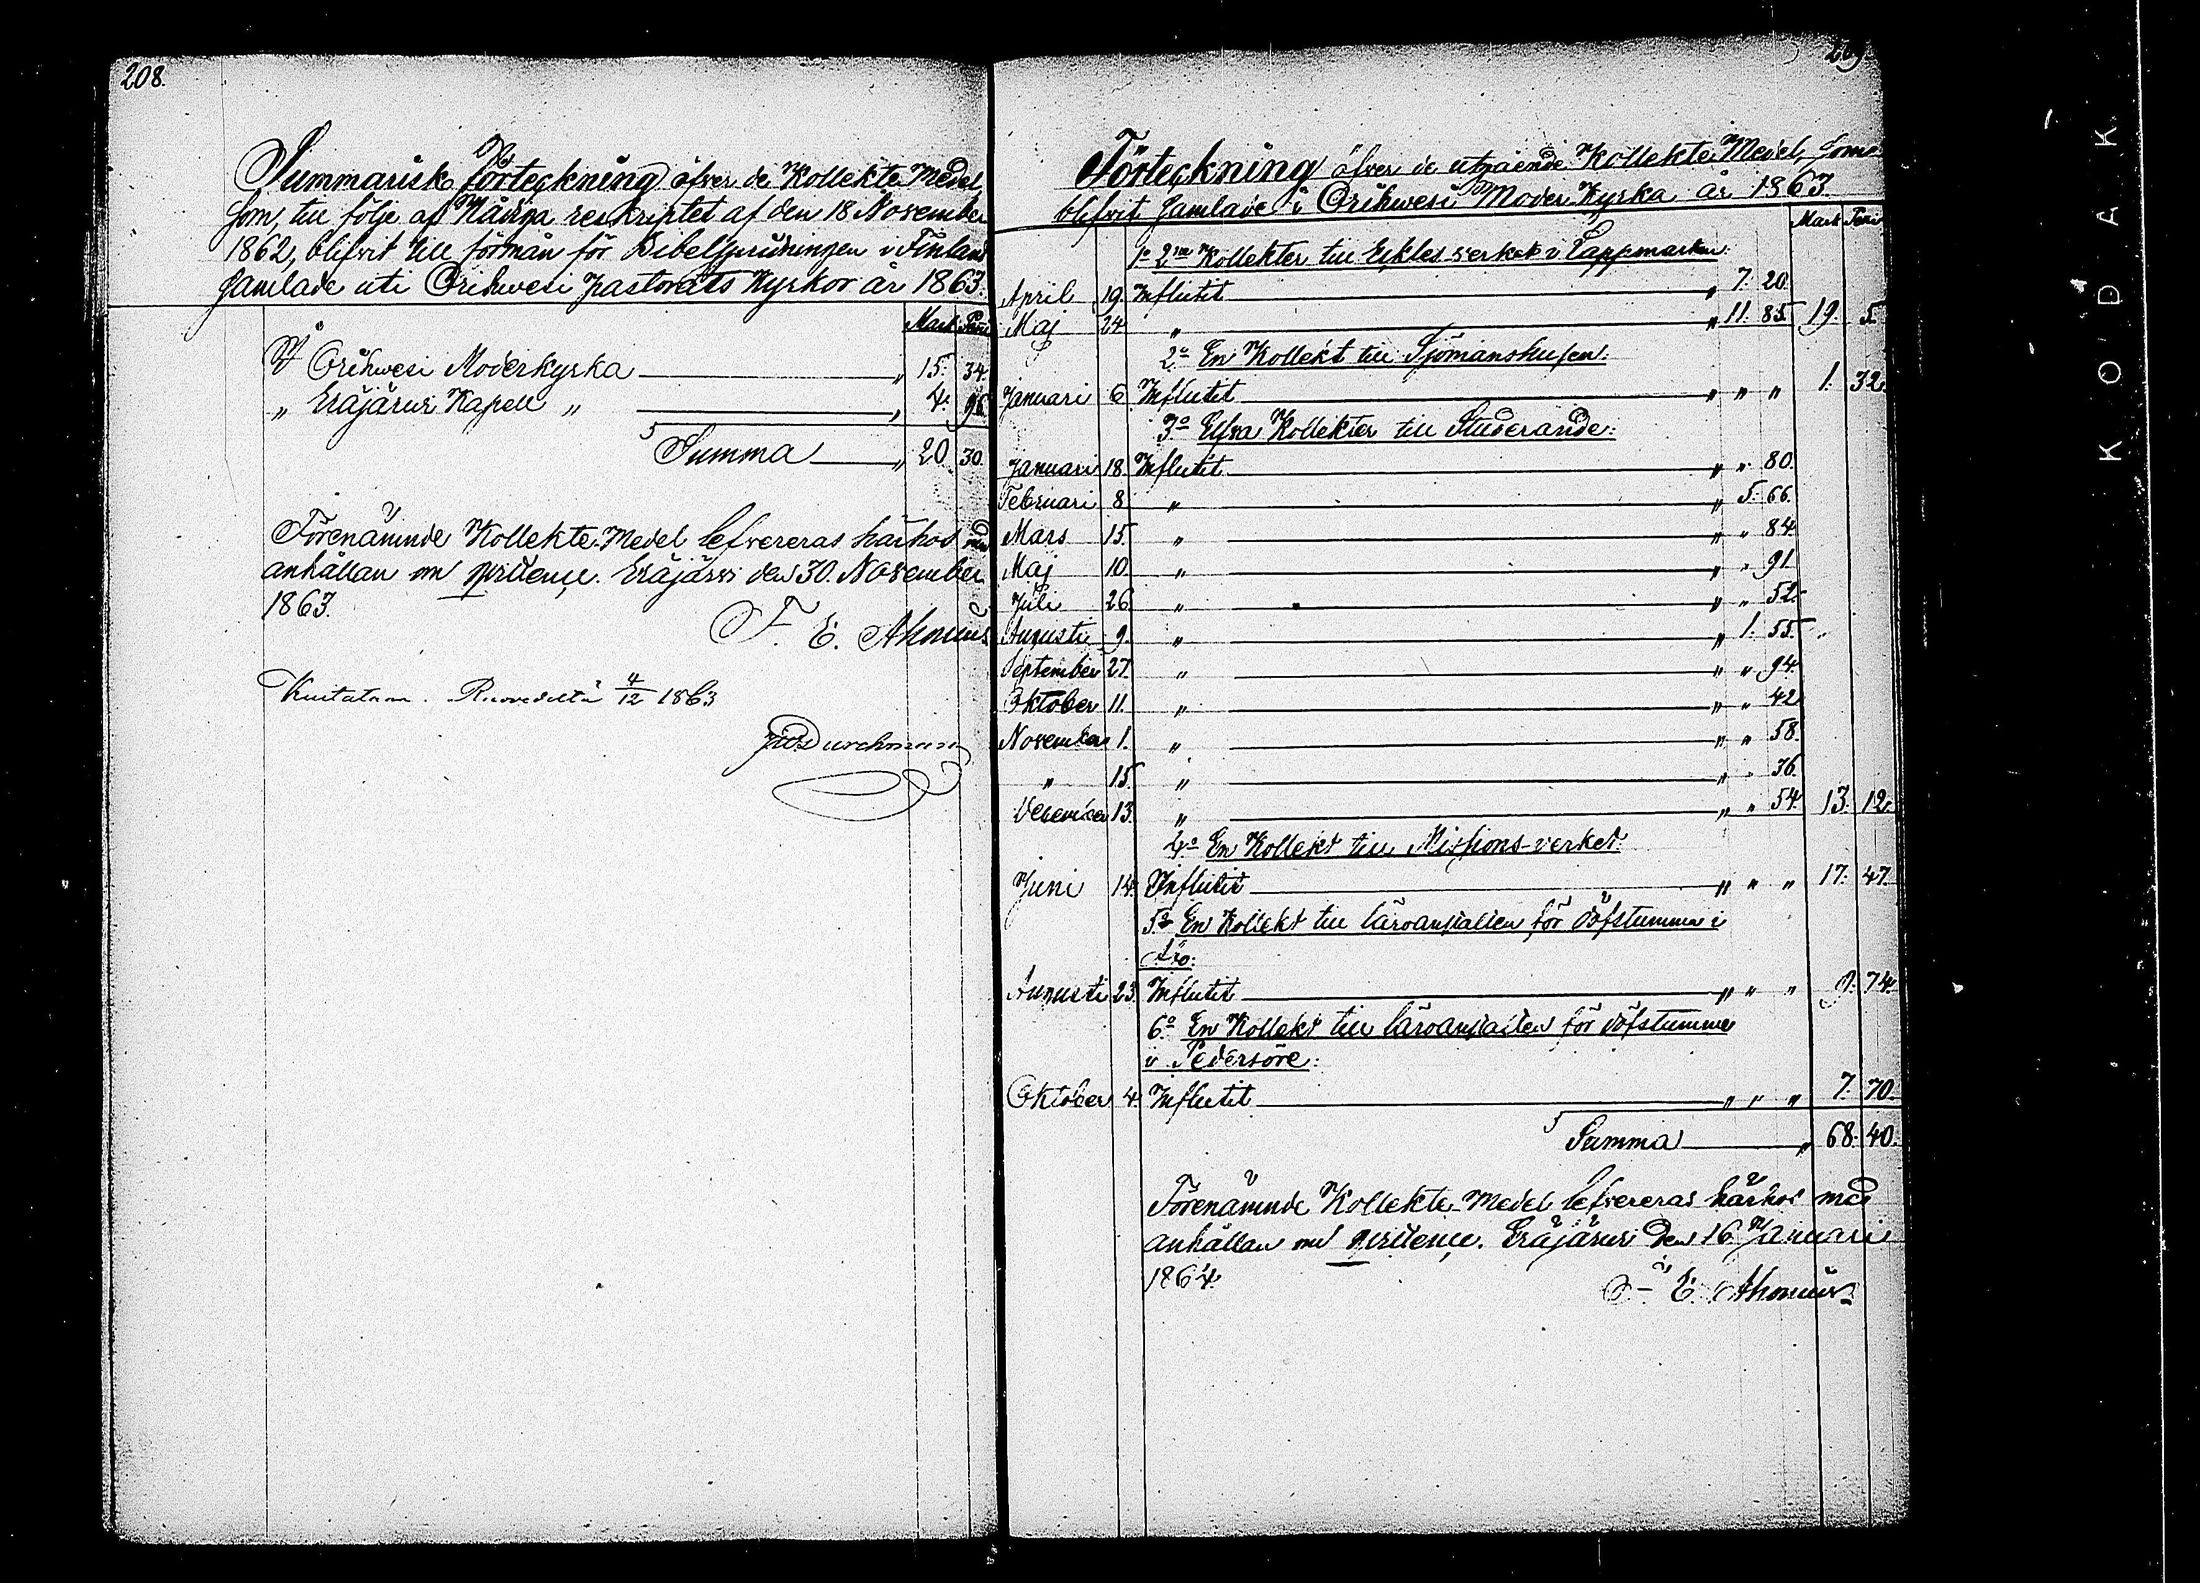 208.
Summarisk Förteckning öfver de Kollekte Medel,
som, till följe af Nådiga reskriptet af den 18 November
1862, blifvit till förmån för Bibelspridningen i Finland
samlade uti Orihwesi pastorats Kyrkor år 1863.
Mark Penni
I Orihwesi Moderkyrka " 15. 34.
" Eräjärvi Kapell " " 4. 96.
Summa " 20 30.
Förenämnde Kollekte Medel lefvereras härhos med
anhållan om qvittence. Eräjärvi den 30. November
1863.
F. E. Ahonius
Kvitatum. Ruovedellä 4/12 1863
Durchman
209
Förteckning öfver de utgående Kollekte Medel, som
blifvit samlade i Orihwesi Moder Kyrka år 1863.
Mark Penni
1o 2ne Kollekter till Eckles. verket i Lappmarken:
April 19. Influtit " 7. 20.
Maj 24 " " 11. 85. 19. 5.
2o En Kollekt till Sjömanshusen:
Januari 6. Influtit " " " 1. 32.
3o Elfva Kollekter till Studerande:
Januari 18. Influtit " " 80.
Februari 8. " " 5. 66.
Mars 15. " " " 84.
Maj 10. " " " 91
Juli 26. " " " 52.
Augusti 9. " " 1. 55.
September 27. " " " 94.
Oktober 11. " " " 42
November 1. " " " 58.
" 15. " " " 36.
December 13. " " " 54. 13. 12.
4o En Kollekt till Missions-verket:
Juni 14. Influtit " " " 17. 47.
5o En Kollekt till läroanstalten för döfstumma i
Åbo:
Augusti 23. Influtit " " " 9. 74.
6o En Kollekt till läroanstalten för döfstumma
i Pedersöre:
Oktober 4. Influtit " " " 7. 70.
Summa " 68. 40.
Förenämnde Kollekte-Medel lefvereras härhos med
anhållan om qvittence. Eräjärvi den 16 Januari
1864.
F. E. Ahonius
KODAK